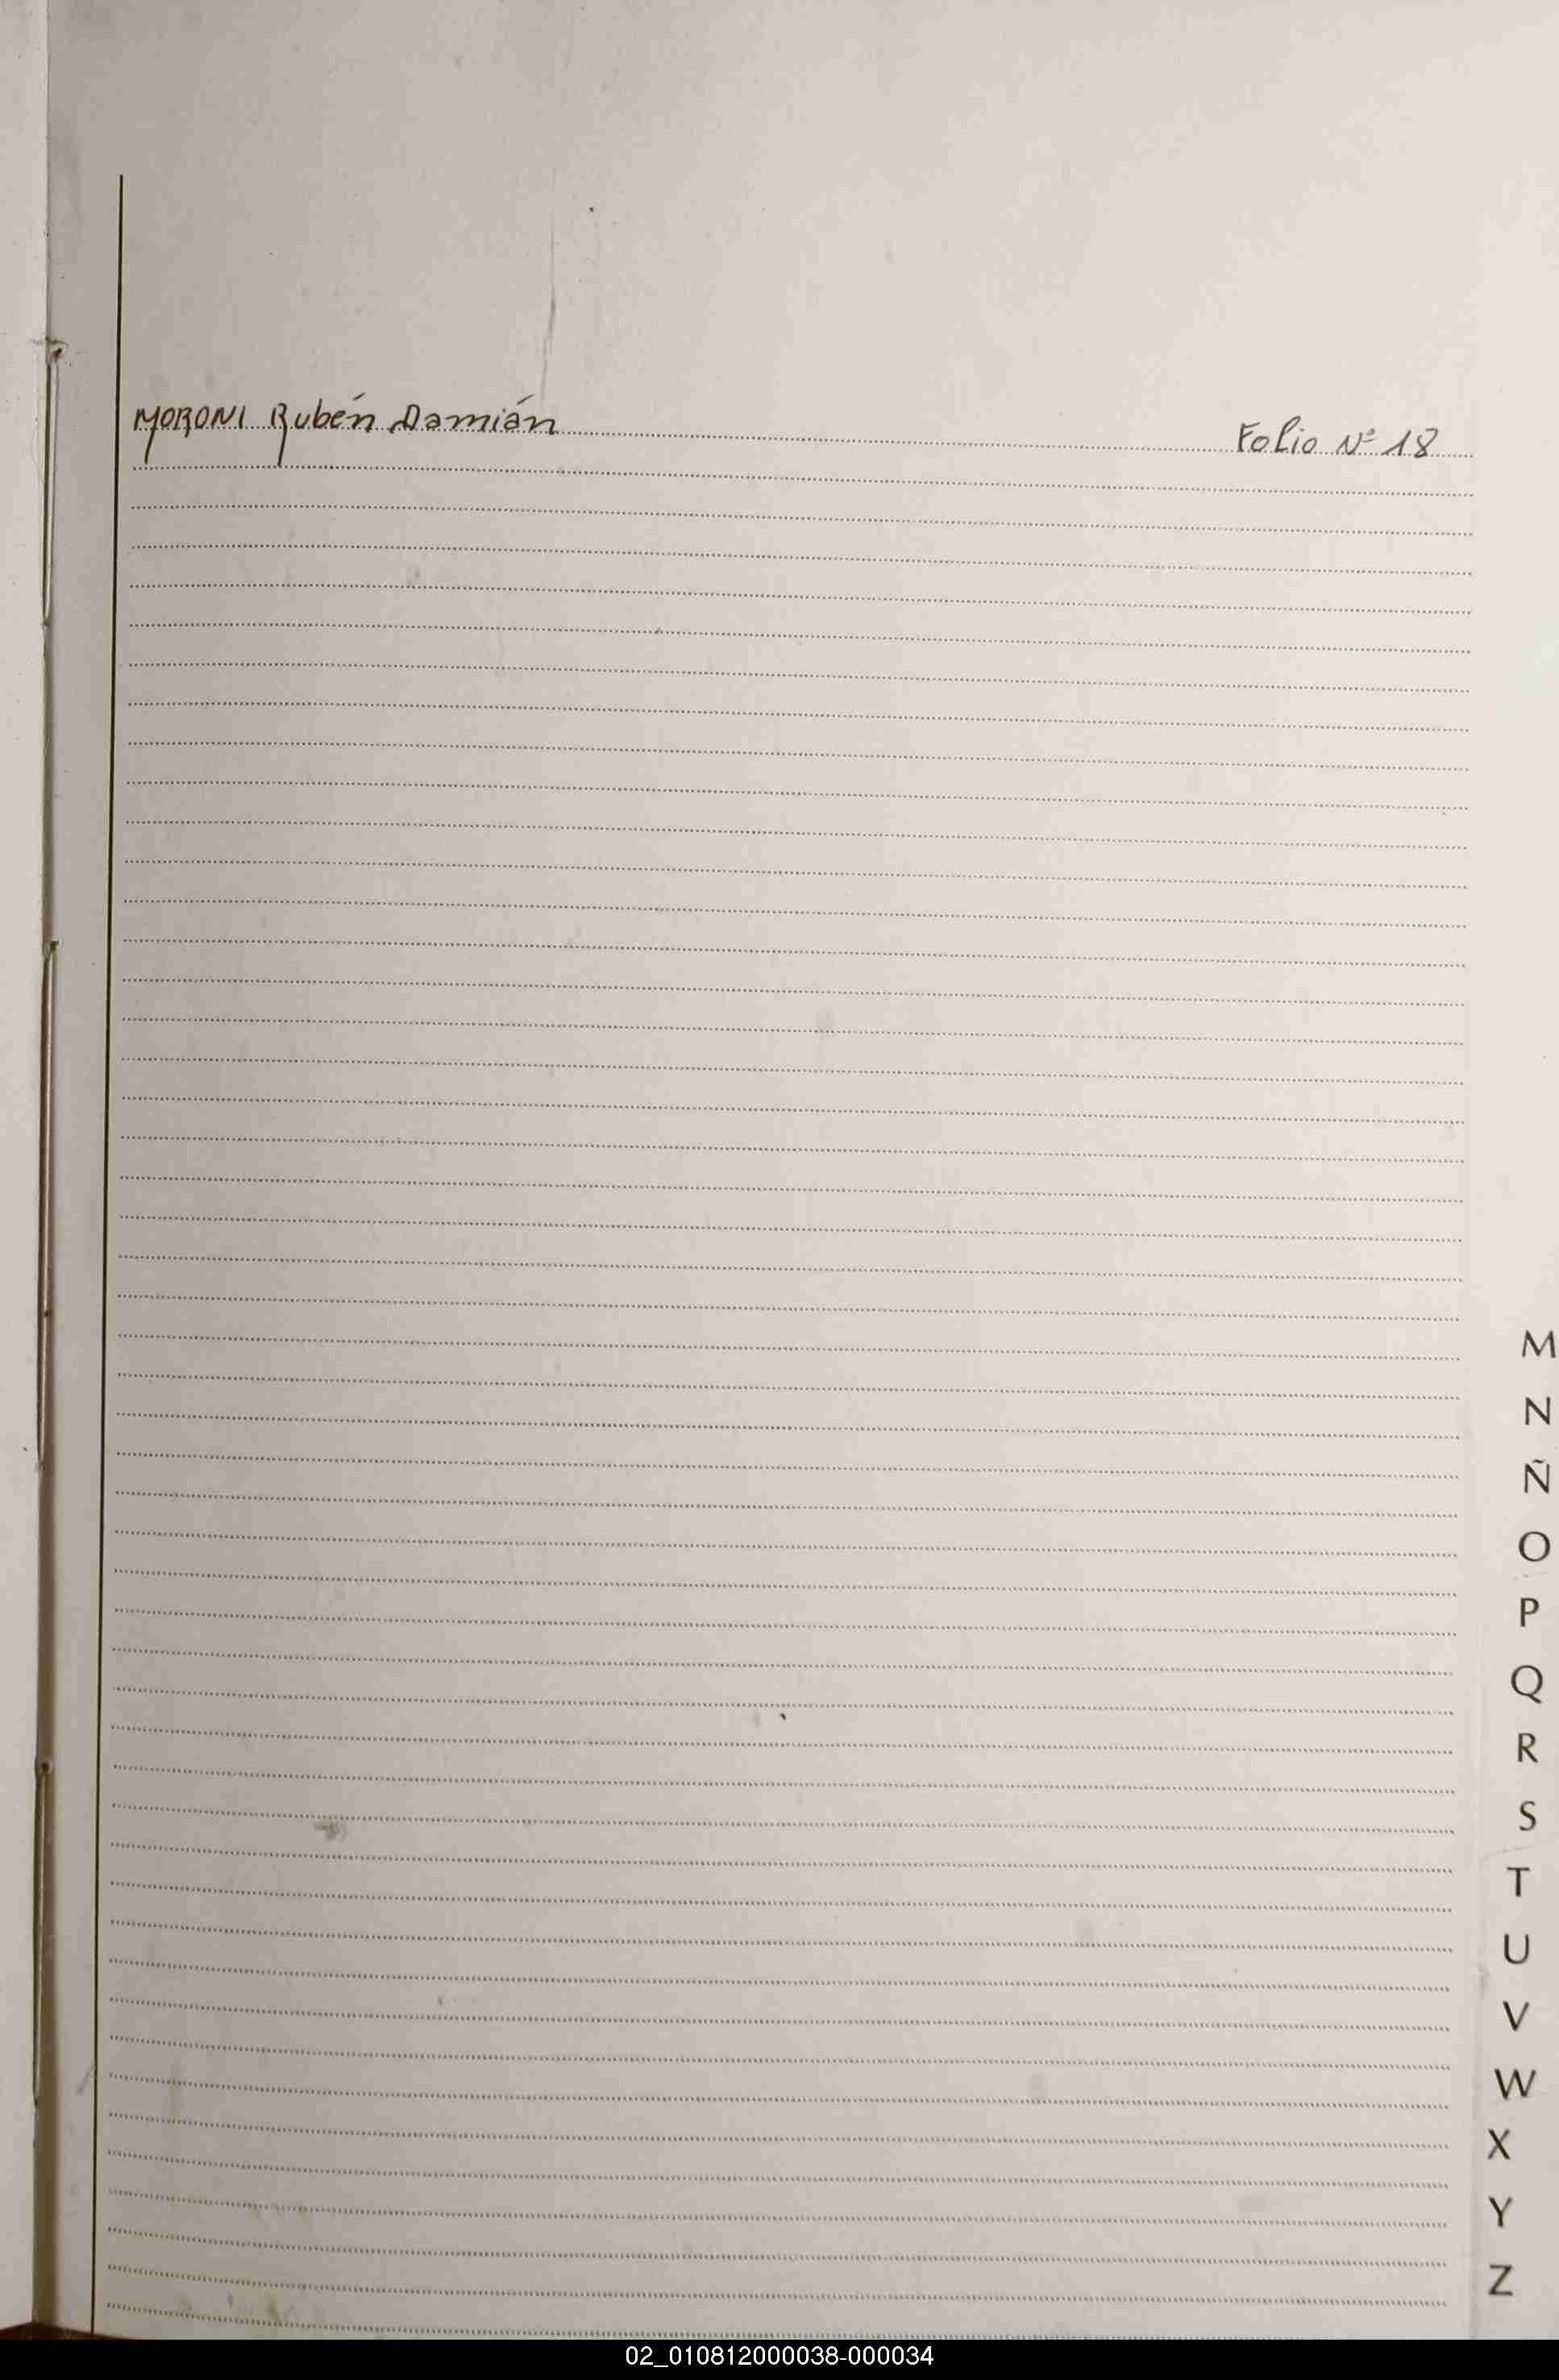 MORONI Rubén Damián Folio Nº 18
M
N
Ñ
O
P
Q
R
S
T
U
V
W
X
Y
Z
02_010812000038-000034